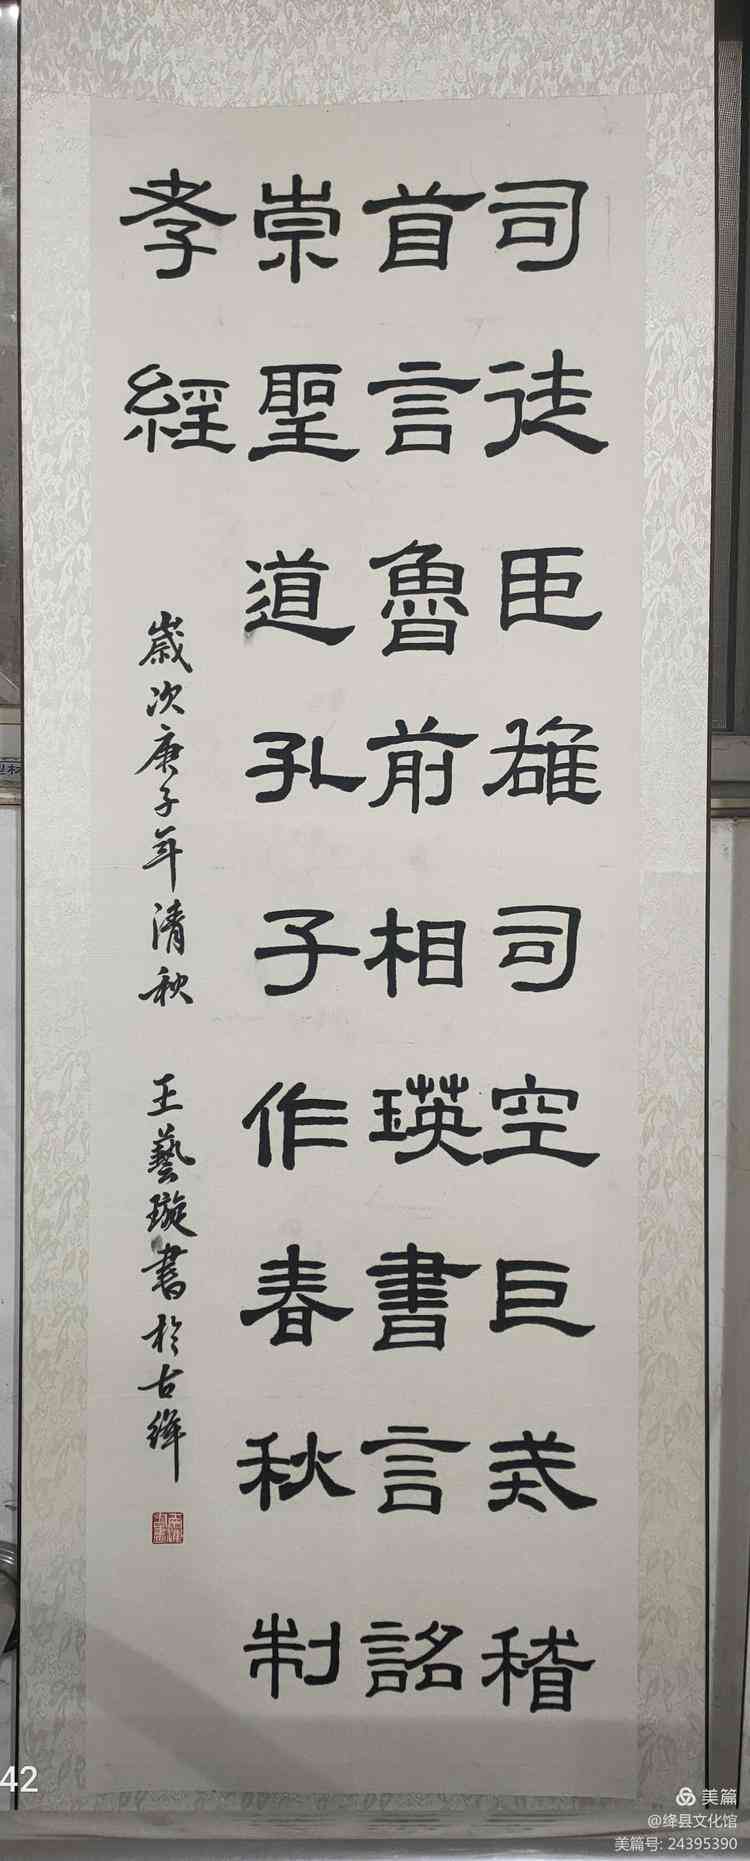 司徒臣雄司空巨戒稽
首言魯前相瑛書言詔
崇聖道孔子作春秋制
孝經
歲次庚子年清秋 王藝璇書於古絳
42
美篇
@绛县文化馆
美篇号: 24395390